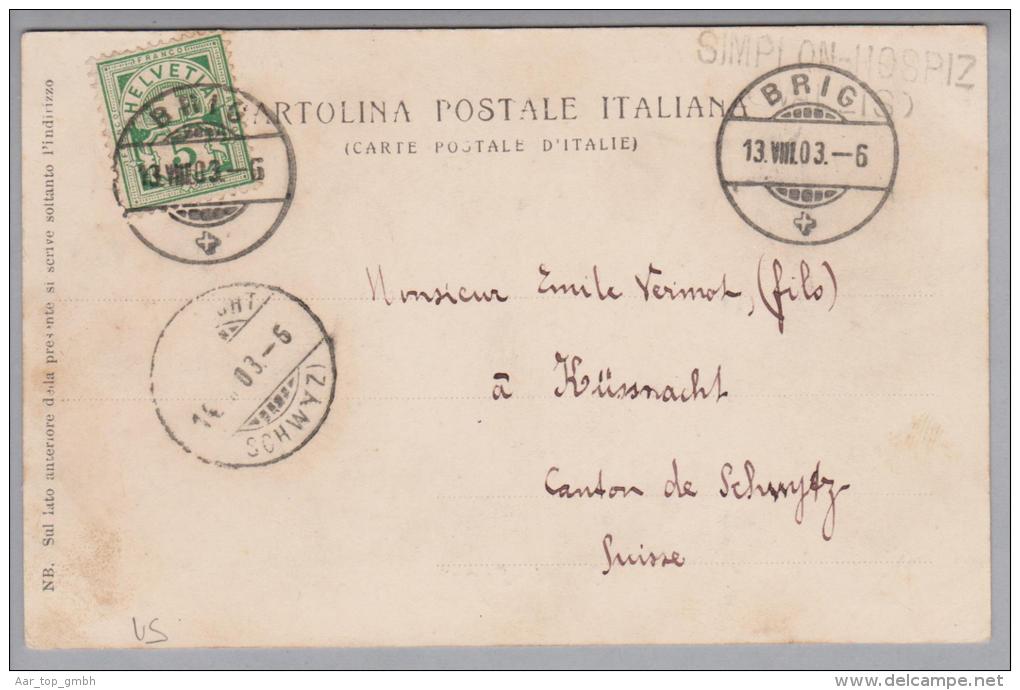 SIMPLON-HOSPIZ
FRANCO
HELVETIA
5
BRIG
13.VIII.03.-6
BRIG
13.VIII.03.-6
CARTOLINA POSTALE ITALIANA
(CARTE POSTALE D'ITALIE)
NB. Sul lato anteriore della presente si scrive soltanto l'indirizzo
Monsieur Emile Vermot, (fils)
à Küssnacht
Canton de Schwytz
Suisse
03.-6
(SCHWYZ)
VS
Aar_top_gmbh
www.delcampe.net